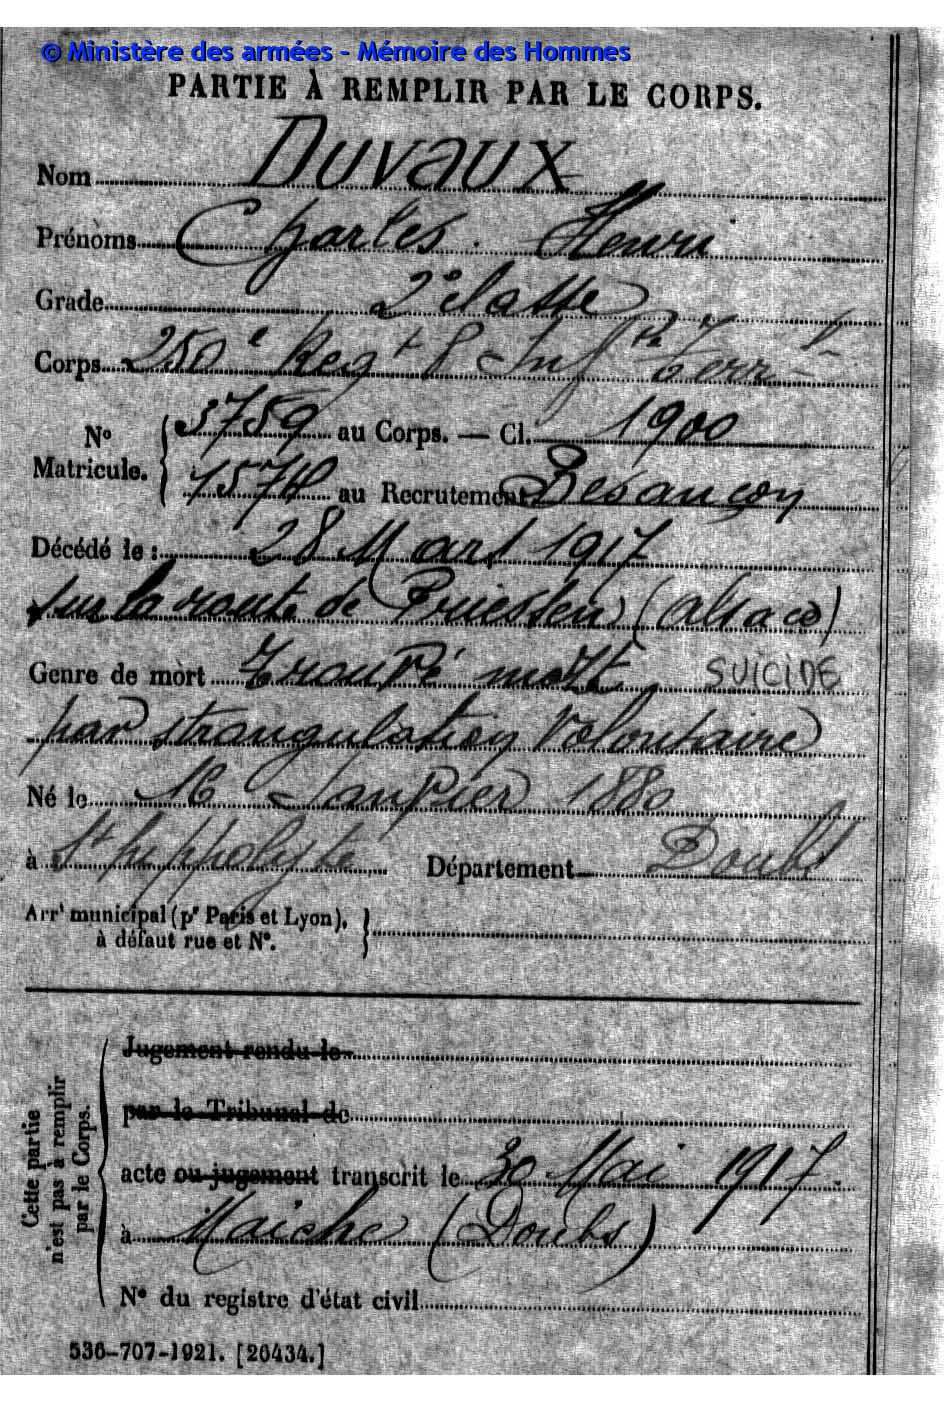 © Ministère des armées - Mémoire des Hommes
PARTIE À REMPLIR PAR LE CORPS.
Nom DUVAUX
Prénoms Charles. Henri
Grade 2e classe
Corps 250e Regt d'Infie Terr
No Matricule. { 3759 au Corps. — Cl. 1900
au Recrutement Besançon
Décédé le : 28 Mars 1917
sur la route de Friessen (alsace)
Genre de mort trouvé mort SUICIDE
par strangulation Volontaire
Né le 16 Janvier 1880
à St hippolyte Département Doubs
Arrt municipal (pr Paris et Lyon),
à défaut rue et No.
Jugement rendu le
par le Tribunal de
acte ou jugement transcrit le 30 Mai 1917.
à Maîche (Doubs)
No du registre d'état civil
Cette partie
n'est pas à remplir
par le Corps.
536-707-1921. [26434.]